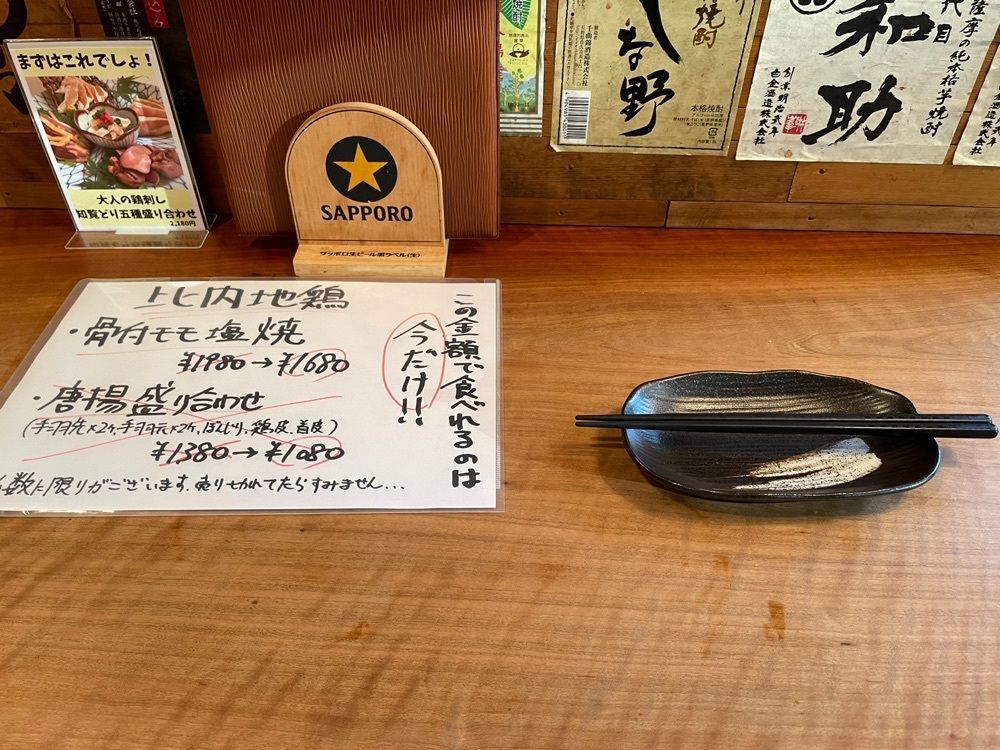 まずはこれでしょ！
大人の鶏刺し
知覧どり五種盛り合わせ
2,180円
SAPPORO
サッポロ生ビール黒ラベル(生)
比内地鶏
・骨付モモ塩焼
¥1980→¥1680
・唐揚盛り合わせ
(手羽先×2ヶ,手羽元×2ヶ,ぼんじり,鶏皮,首皮)
¥1380→¥1080
数に限りがございます.売り切れてたらすみません...
この金額で食べれるのは
今だけ!!
焼酎
な野
千曲錦酒造株式会社
本格焼酎
和
助
目
薩摩の純本格芋焼酎
創業明治弐年
白金酒造株式会社